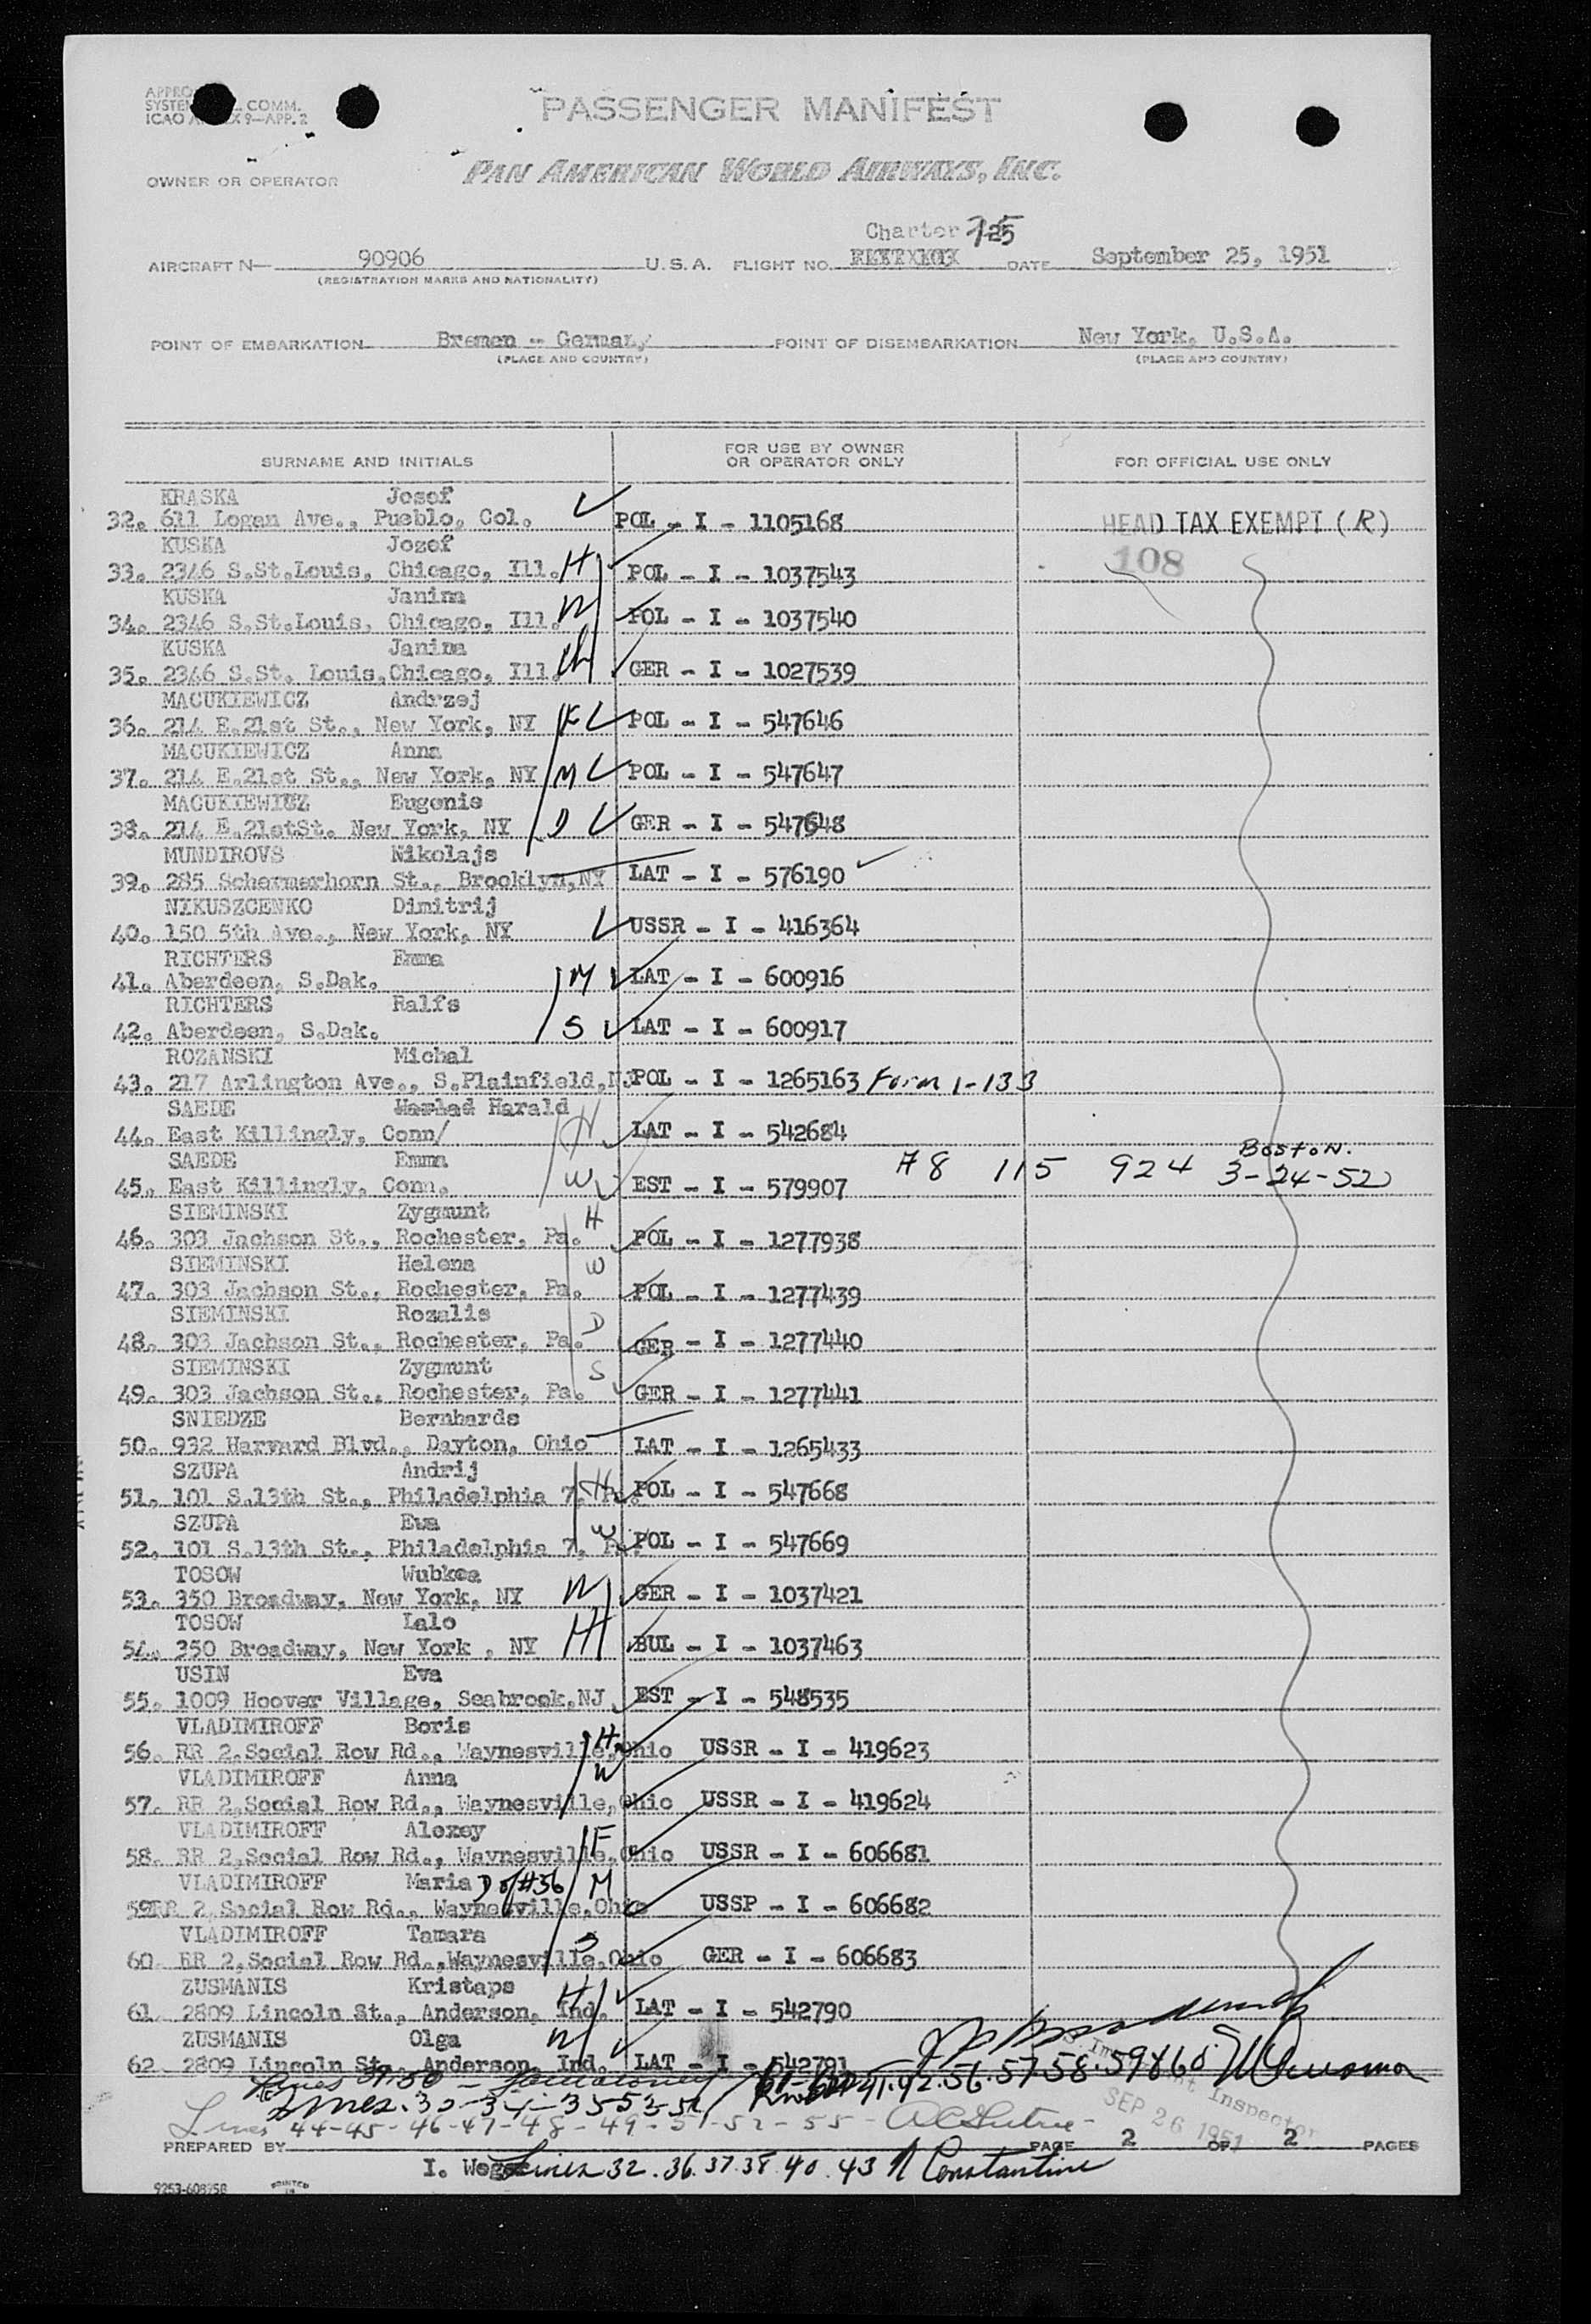 PASSENGER MANIFEST
PAN AMERICAN WORLD AIRWAYS, INC.
COMM.
ICAO 9—APP. 2
OWNER OR OPERATOR
Charter 725
AIRCRAFT N— 90906 U.S.A. FLIGHT NO. DATE September 25, 1951
(REGISTRATION MARKS AND NATIONALITY)
POINT OF EMBARKATION Bremen -- Germany POINT OF DISEMBARKATION New York, U.S.A.
(PLACE AND COUNTRY) (PLACE AND COUNTRY)
SURNAME AND INITIALS FOR USE BY OWNER OR OPERATOR ONLY FOR OFFICIAL USE ONLY
KRASKA Josef
32. 611 Logan Ave., Pueblo, Col. POL - I - 1105168 HEAD TAX EXEMPT (R)
KUSKA Jozef 108
33. 2346 S.St.Louis, Chicago, Ill. H POL - I - 1037543
KUSKA Janina
34. 2346 S.St.Louis, Chicago, Ill. W POL - I - 1037540
KUSKA Janina
35. 2346 S.St. Louis,Chicago, Ill. Ch GER - I - 1027539
MACUKIEWICZ Andrzej
36. 214 E.21st St., New York, NY POL - I - 547646
MACUKIEWICZ Anna
37. 214 E.21st St., New York, NY M POL - I - 547647
MACUKIEWICZ Eugenie
38. 214 E.21stSt. New York, NY D GER - I - 547648
MUNDIROVS Nikolajs
39. 285 Schermerhorn St., Brooklyn,NY LAT - I - 576190
NIKUSZCENKO Dimitrij
40. 150 5th Ave., New York, NY USSR - I - 416364
RICHTERS Emma
41. Aberdeen, S.Dak. M LAT - I - 600916
RICHTERS Ralfs
42. Aberdeen, S.Dak. S LAT - I - 600917
ROZANSKI Michal
43. 217 Arlington Ave., S.Plainfield,NJ POL - I - 1265163 Form I-133
SAEDE Harald
44. East Killingly, Conn/ H LAT - I - 542684
SAEDE Emma A8 115 924 Boston.
45. East Killingly, Conn. W EST - I - 579907 3-24-52
SIEMINSKI Zygmunt H
46. 303 Jachson St., Rochester, Pa. POL - I - 1277938
SIEMINSKI Helena W
47. 303 Jachson St., Rochester, Pa. POL - I - 1277439
SIEMINSKI Rozalie D
48. 303 Jachson St., Rochester, Pa. GER - I - 1277440
SIEMINSKI Zygmunt S
49. 303 Jachson St., Rochester, Pa. GER - I - 1277441
SNIEDZE Bernhards
50. 932 Harvard Blvd., Dayton, Ohio LAT - I - 1265433
SZUPA Andrij
51. 101 S.13th St., Philadelphia 7, Pa. H POL - I - 547668
SZUPA Ewa
52. 101 S.13th St., Philadelphia 7, Pa. W POL - I - 547669
TOSOW Wubkea
53. 350 Broadway, New York, NY W GER - I - 1037421
TOSOW Lalo
54. 350 Broadway, New York , NY H BUL - I - 1037463
USIN Eva
55. 1009 Hoover Village, Seabrook,NJ EST - I - 548535
VLADIMIROFF Boris
56. RR 2,Social Row Rd., Waynesville,Ohio H USSR - I - 419623
VLADIMIROFF Anna W
57. RR 2,Social Row Rd., Waynesville,Ohio USSR - I - 419624
VLADIMIROFF Alexey F
58. RR 2,Social Row Rd., Waynesville,Ohio USSR - I - 606681
VLADIMIROFF Maria D of #56 M
59RR 2,Social Row Rd., Waynesville,Ohio USSP - I - 606682
VLADIMIROFF Tamara
60. RR 2,Social Row Rd.,Waynesville,Ohio GER - I - 606683
ZUSMANIS Kristaps H
61. 2809 Lincoln St., Anderson, Ind. LAT - I - 542790
ZUSMANIS Olga W
62. 2809 Lincoln St., Anderson, Ind. LAT - I - 542791
41.42.56.57.58.59&60.
Lines 44-45-46-47-48-49-51-52-55-
Immigrant Inspector
SEP 26 1951
PREPARED BY PAGE 2 OF 2 PAGES
Lines 32.36.37.38.40.43 Constantine